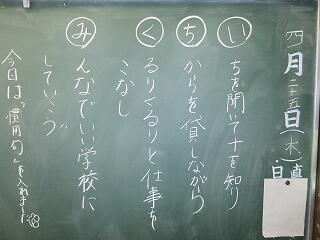 四月二十五日(木)
日直
い ちを聞いて十を知り
ち からを貸しながら
く るりくるりと仕事を
こなし
み んなでいい学校に
していこう
今日は“慣用句”を入れました